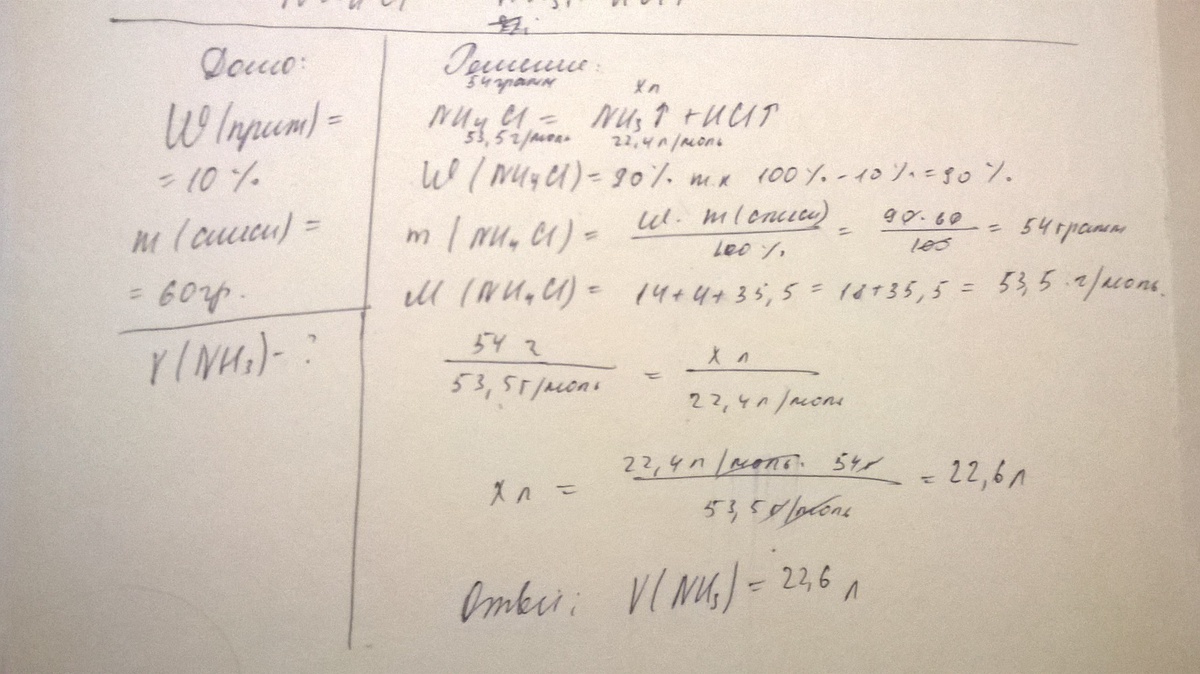 Дано:
W(прим) =
= 10 %.
m (смеси) =
= 60гр.
V(NH3)- ?
Решение:
54грамм
x л
NH4Cl = NH3↑ + HCl↑
53,5г/моль 22,4л/моль
W (NH4Cl) = 90%. т к 100%. - 10%. = 90 %.
m (NH4Cl) = W. m(смеси) / 100 %. = 90.60 / 100 = 54грамм
M (NH4Cl) = 14+4+35,5 = 18+35,5 = 53,5 г/моль.
54 г / 53,5г/моль = x л / 22,4л/моль
x л = 22,4л/моль. 54г / 53,5г/моль = 22,6л
Ответ: V(NH3) = 22,6 л